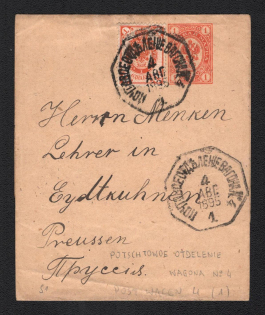 ПОЧТОВОЕ ОТДѢЛЕНІЕ ВАГОНЪ № 4
4
АВГ
1895
1
Herrn Menken
Lehrer in
Eydtkuhnen
Preussen
Пруссія.
ПОЧТОВОЕ ОТДѢЛЕНІЕ ВАГОНЪ № 4
4
АВГ
1895
1.
OTDELENIE
WAGONA Nº 4
4 (1)